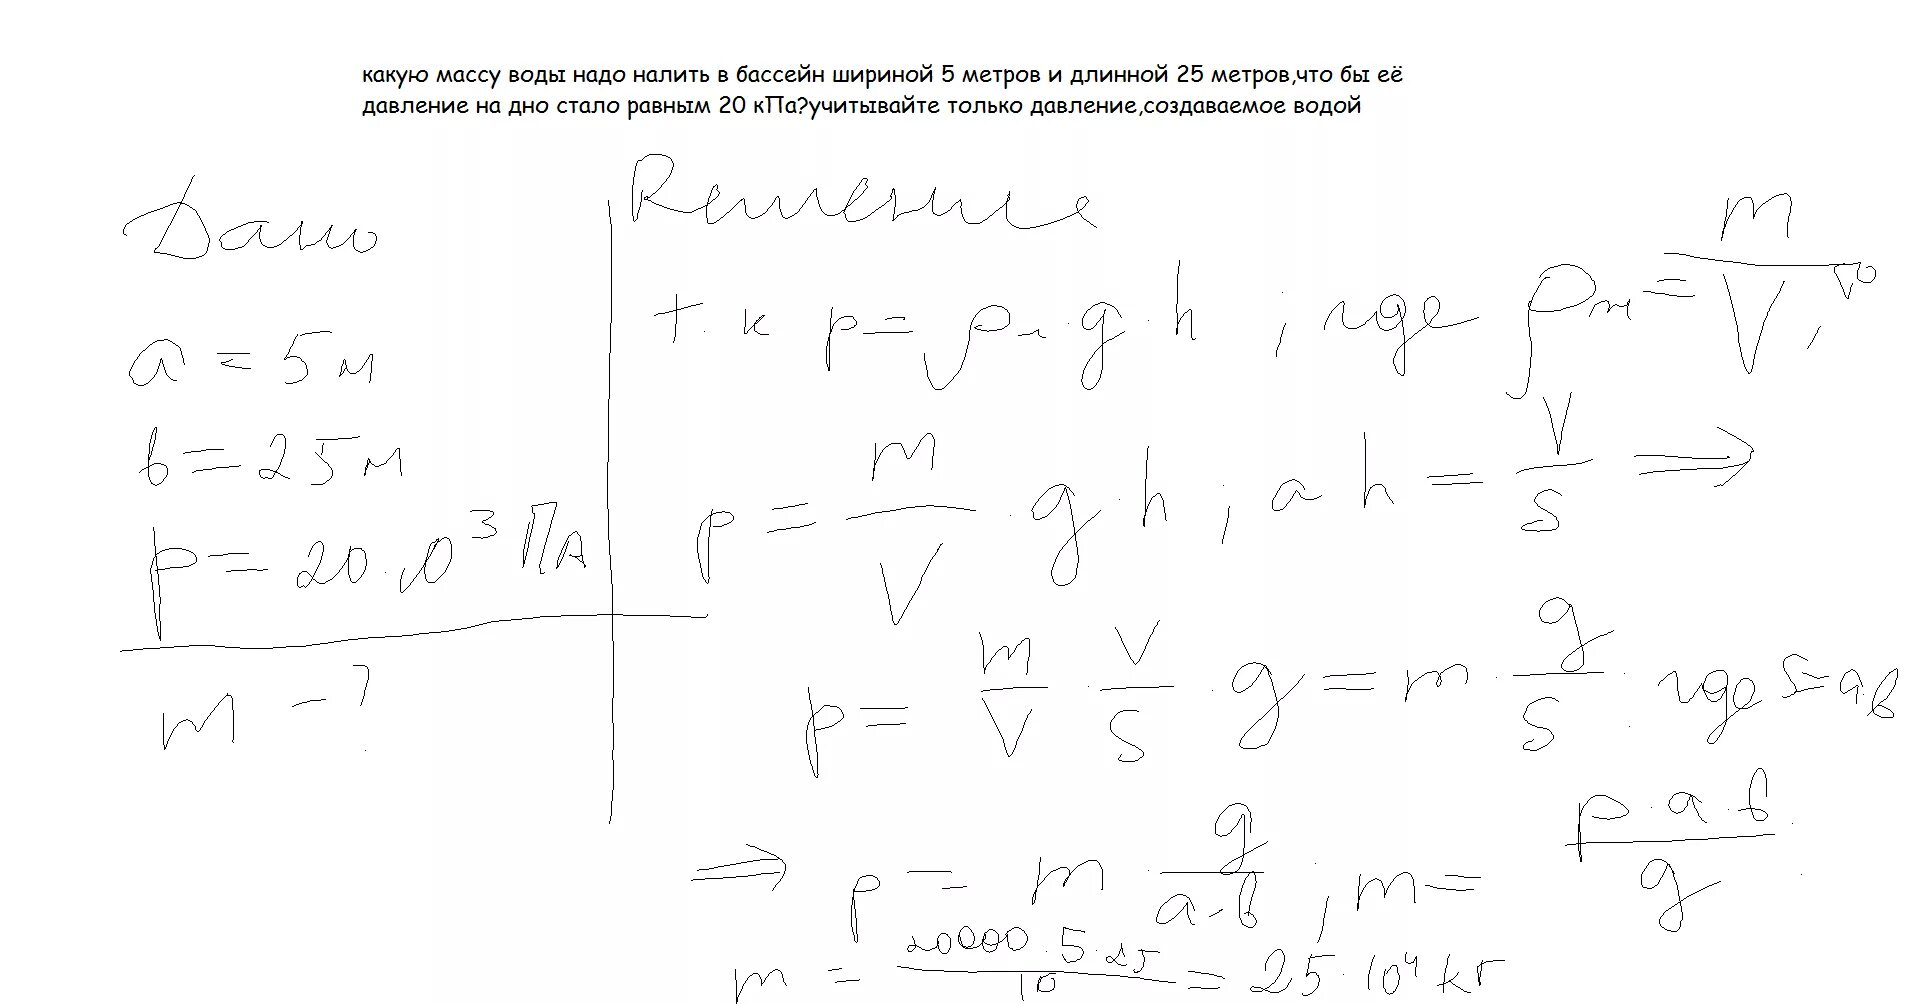 какую массу воды надо налить в бассейн шириной 5 метров и длинной 25 метров,что бы её
давление на дно стало равным 20 кПа?учитывайте только давление,создаваемое водой
Дано
a = 5 м
b = 25 м
p = 20·10³ Па
m – ?
Решение
т.к p = ρ · g · h ; где ρ = m/V ,
p = m/V · g · h ; а h = V/S ⇒
p = m/V · V/S · g = m · g/S · где S = ab
⇒ p = m · g/(a·b) ; m = (p·a·b)/g
m = (20000·5·25)/10 = 25·10⁴ кг